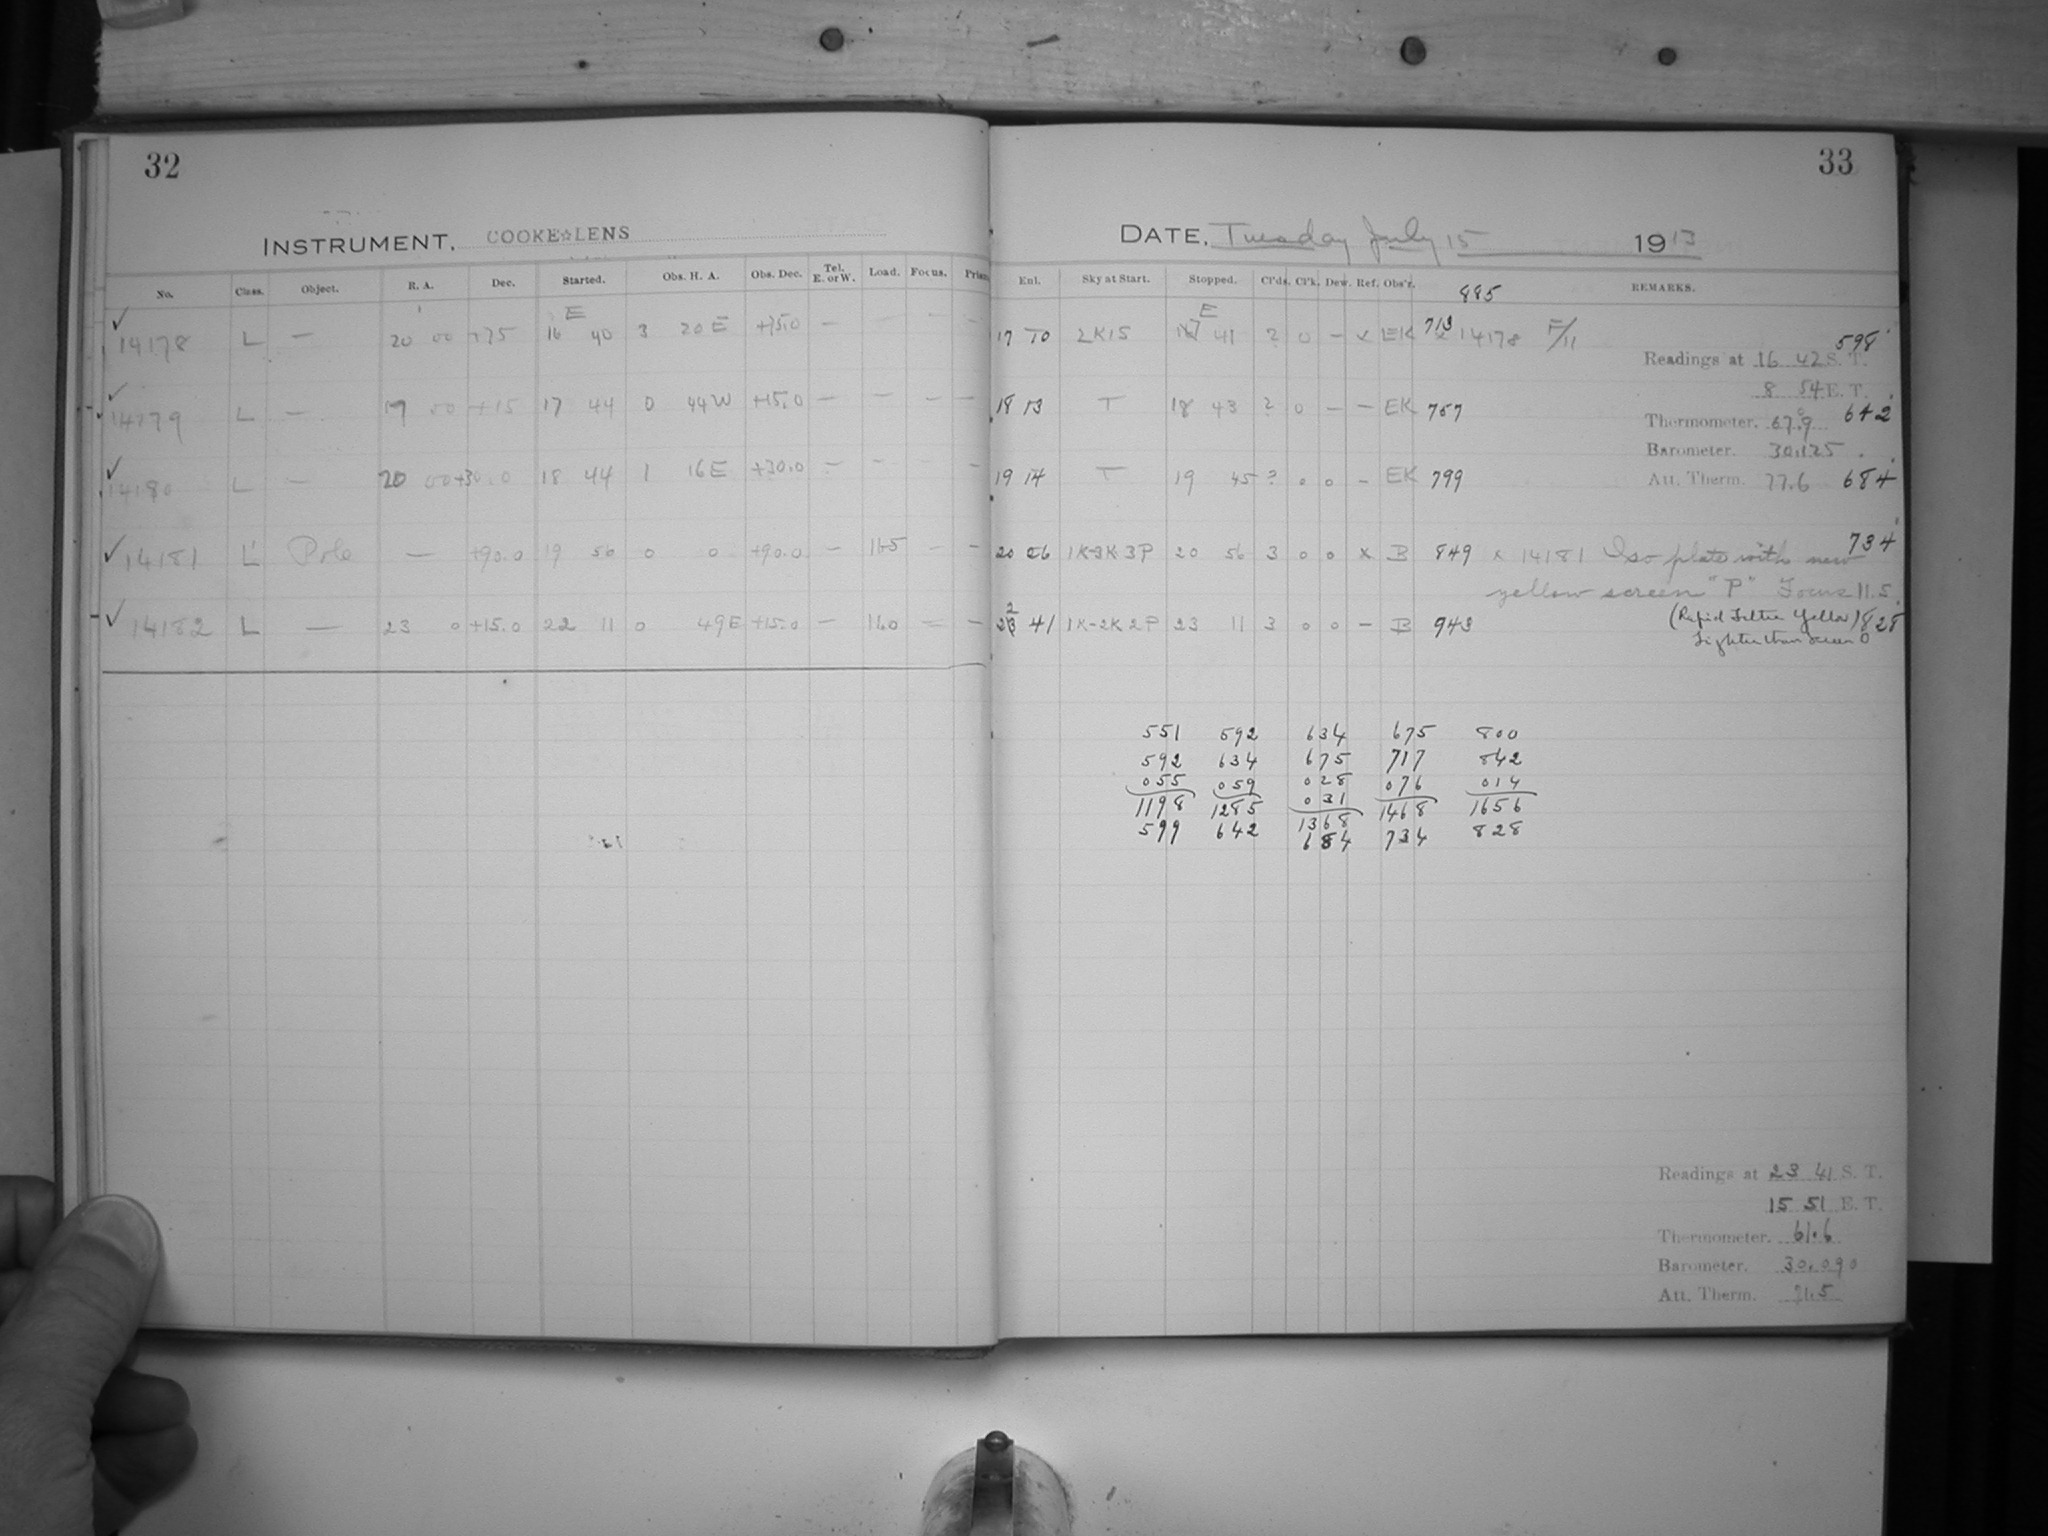 32
INSTRUMENT, COOKE☆LENS
No. Class. Object. R. A. Dec. Started. Obs. H. A. Obs. Dec. Tel. E. or W. Load. Focus. Prism
E
✓ 14178 L — 20 00 +75 16 40 3 20 E +75.0 — — — —
✓ 14179 L — 19 00 +15 17 44 0 44W +15.0 — — — —
✓ 14180 L — 20 00 +30.0 18 44 1 16E +30.0 — — — —
✓ 14181 L' Pole — +90.0 19 56 0 0 +90.0 — 165 — —
✓ 14182 L — 23 0 +15.0 22 11 0 49E +15.0 — 160 — —
33
DATE, Tuesday July 15 1913
Enl. Sky at Start. Stopped. Cl'ds. Cl'k. Dew. Ref. Obs'r. 885 REMARKS.
E
17 10 2K1S 17 41 ? 0 — x EK 713 x 14178 F/11 598
Readings at 16 42 S. T.
8 54 E. T.
18 13 T 18 43 ? 0 — — EK 757
Thermometer. 67.9 642
Barometer. 30.125
19 14 T 19 45 ? 0 0 — EK 799
Att. Therm. 77.6 684
20 26 1K-3K 3P 20 56 3 0 0 x B 849 x 14181 Iso plate with new 734
yellow screen "P" Focus 11.5
22 41 1K-2K 2P 23 11 3 0 0 — B 943 (Rapid Filter Yellow) 828
Lighter than screen O
551 592 634 675 800
592 634 675 717 842
055 059 028 076 014
031
1198 1285 1368 1468 1656
599 642 684 734 828
Readings at 23 41 S. T.
15 51 E. T.
Thermometer. 61.6
Barometer. 30.090
Att. Therm. 71.5